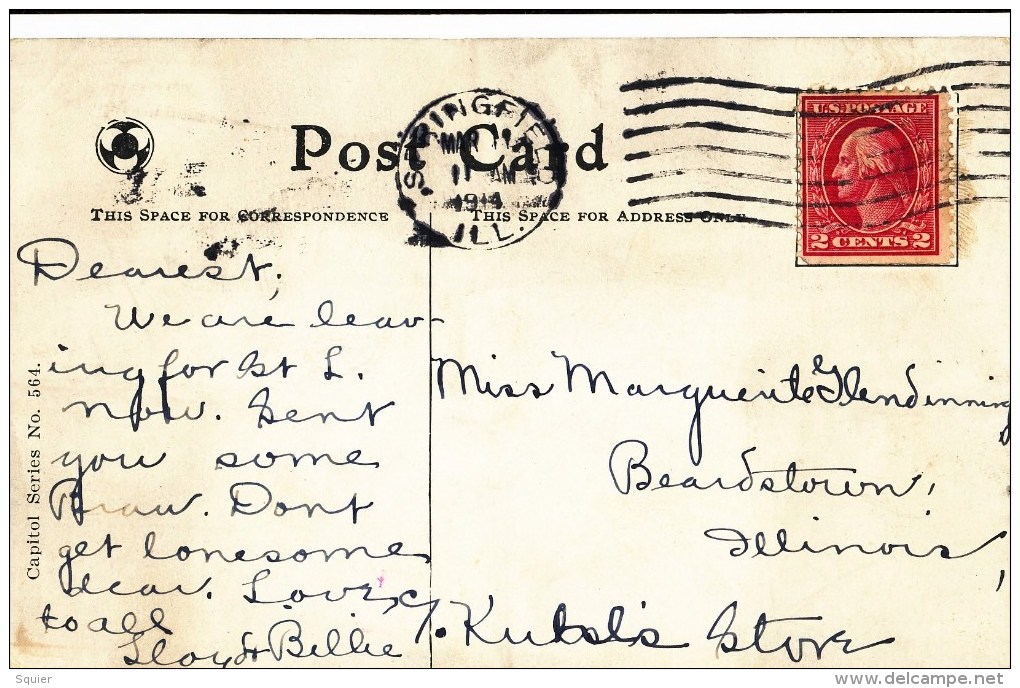 Post Card
SPRINGFIELD
MAR 11
11 AM
1914
ILL.
U.S. POSTAGE
2 CENTS 2
THIS SPACE FOR CORRESPONDENCE
THIS SPACE FOR ADDRESS ONLY
Dearest,
We are leav-
ing for St L.
now. Sent
you some
Dont
get lonesome
dear. Love,
to all
Lloyd & Billie
Capitol Series No. 564.
Miss Marguerite Glendinning
Beardstown,
Illinois,
c/o. Store
Squier
delcampe.net